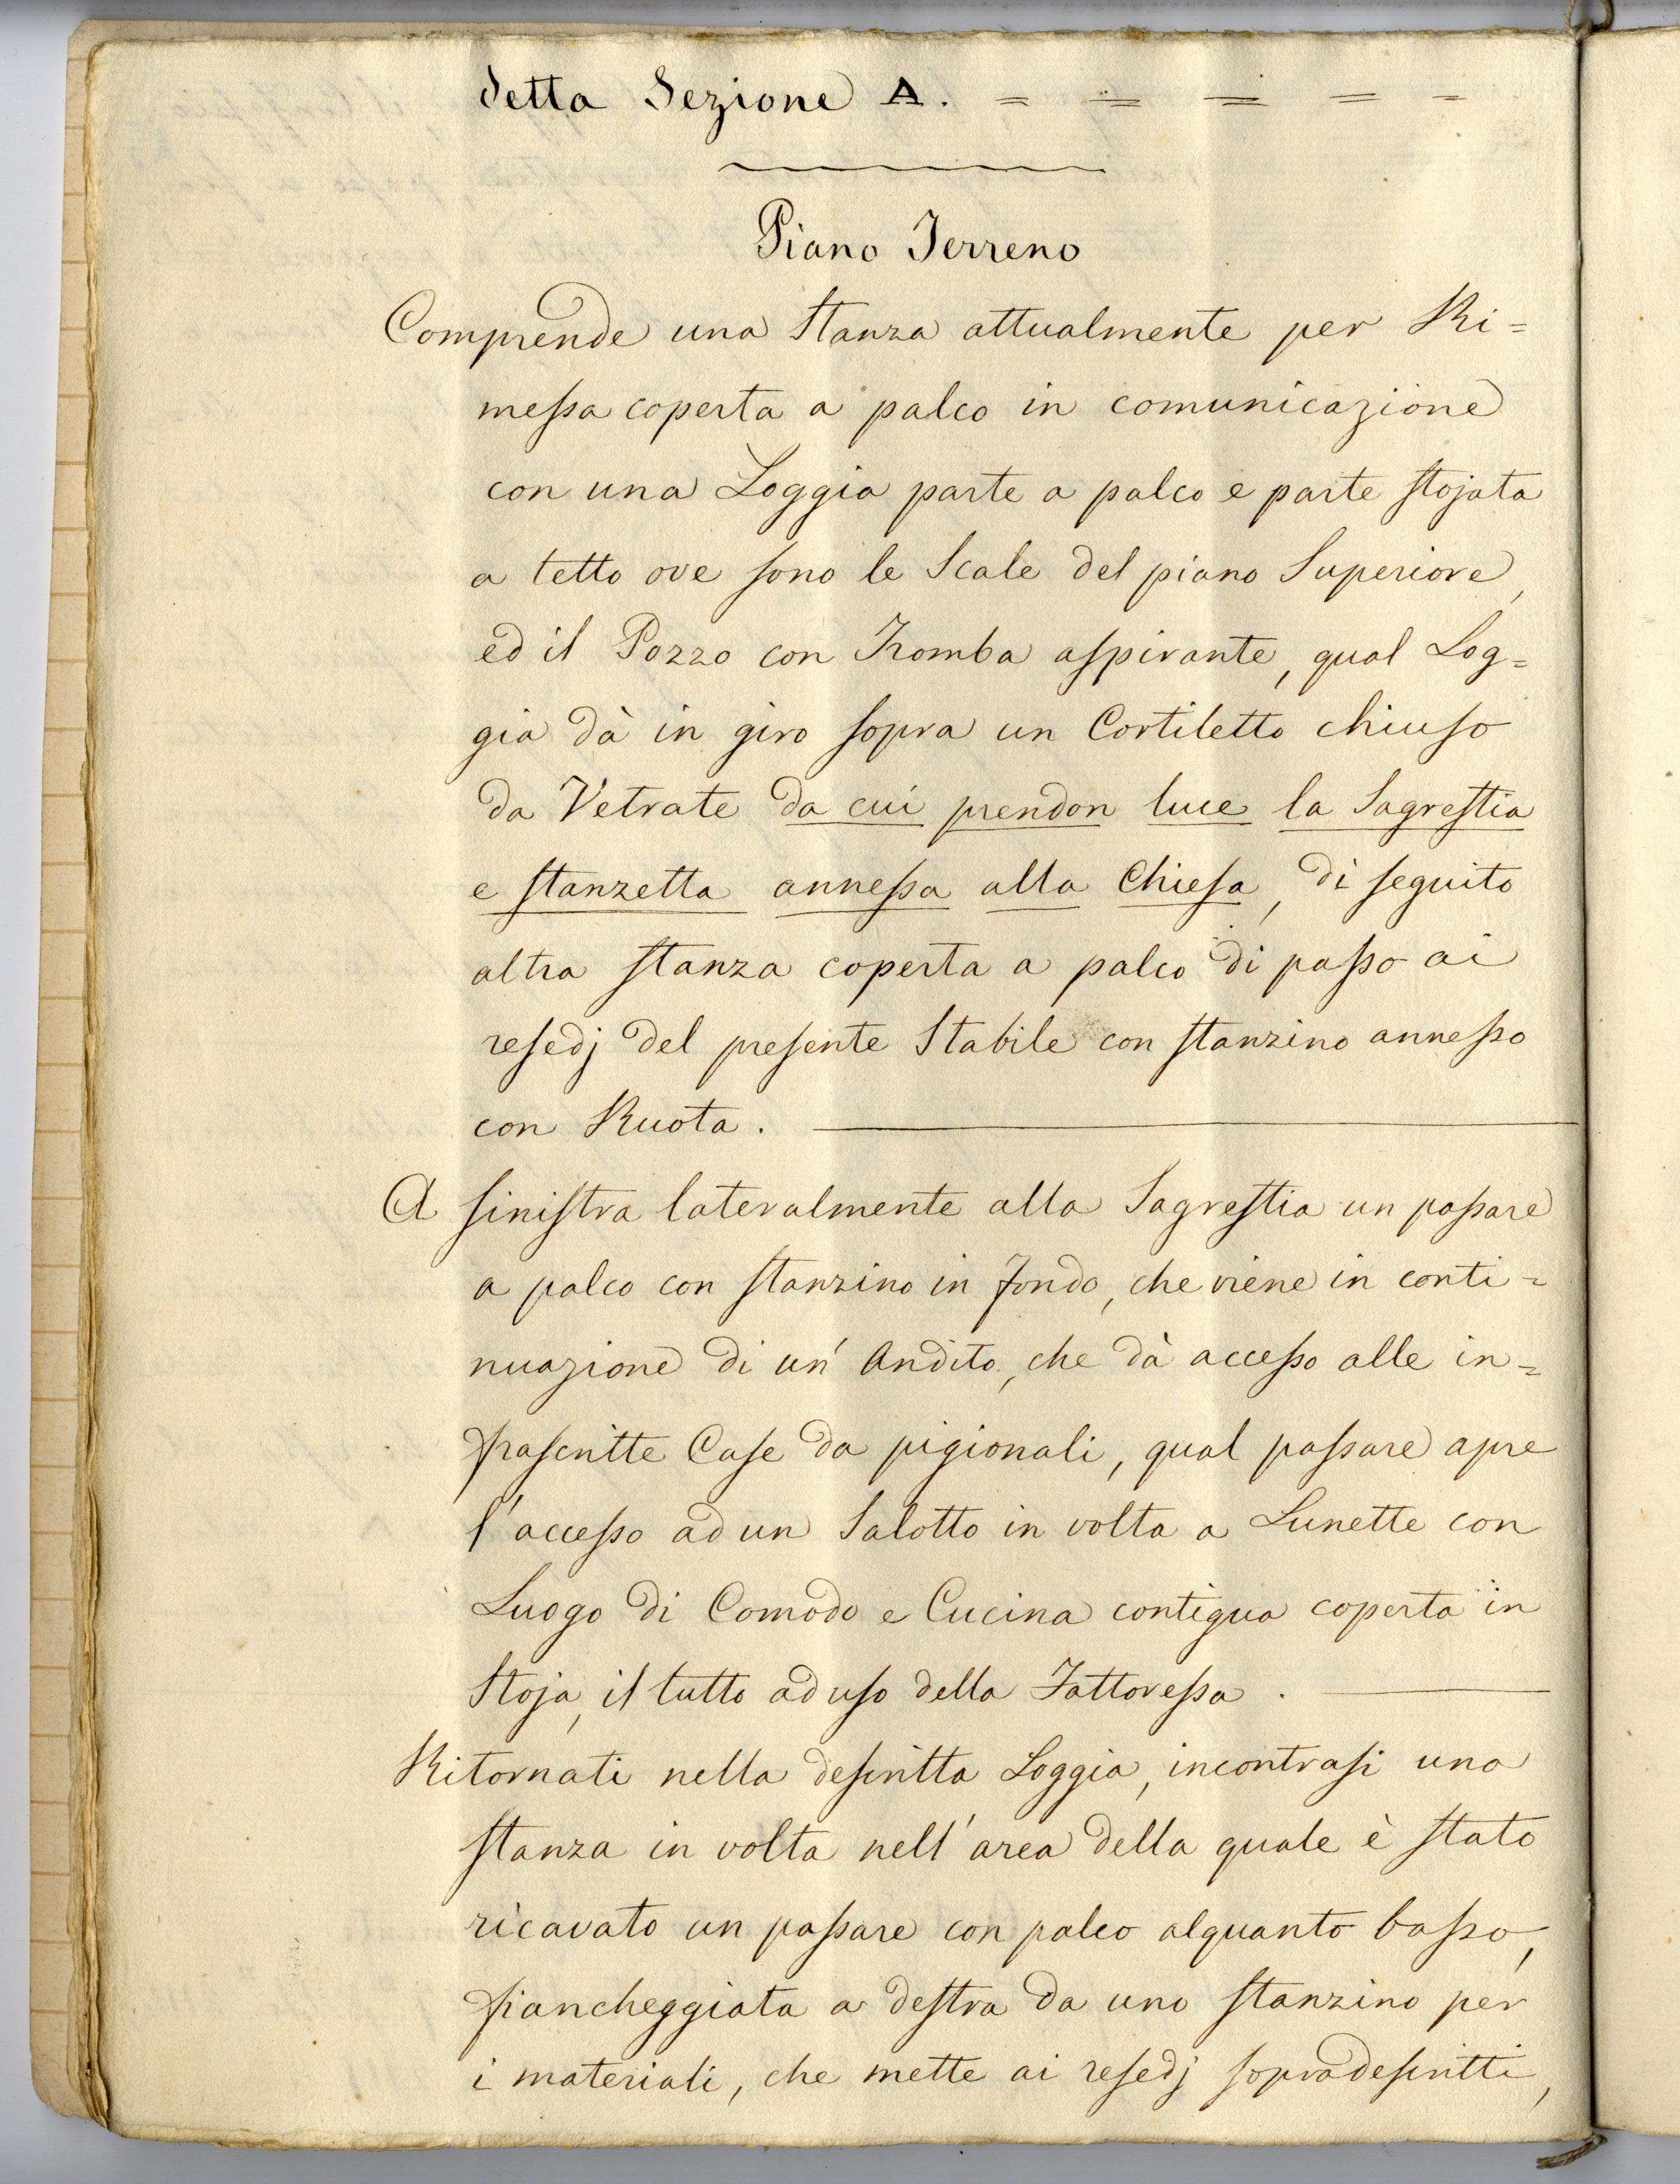 detta Sezione A. = = = = =
Piano Terreno
Comprende una Stanza attualmente per Ri=
messa coperta a palco in comunicazione
con una Loggia parte a palco e parte stojata
a tetto ove sono le Scale del piano Superiore,
ed il Pozzo con Tromba aspirante, qual Log=
gia dà in giro sopra un Cortiletto chiuso
da Vetrate da cui prendon luce la Sagrestia
e stanzetta annessa alla Chiesa, di seguito
altra stanza coperta a palco di passo ai
resedj del presente Stabile con stanzino annesso
con Ruota.
A sinistra lateralmente alla Sagrestia un passare
a palco con stanzino in fondo, che viene in conti=
nuazione di un' Andito, che dà accesso alle in=
frascritte Case da pigionali, qual passare apre
l'accesso ad un Salotto in volta a Lunette con
Luogo di Comodo e Cucina contigua coperta in
Stoja, il tutto ad uso della Fattoressa.
Ritornati nella descritta Loggia, incontrasi una
stanza in volta nell'area della quale è stato
ricavato un passare con palco alquanto basso,
fiancheggiata a destra da uno stanzino per
i materiali, che mette ai resedj sopradescritti,